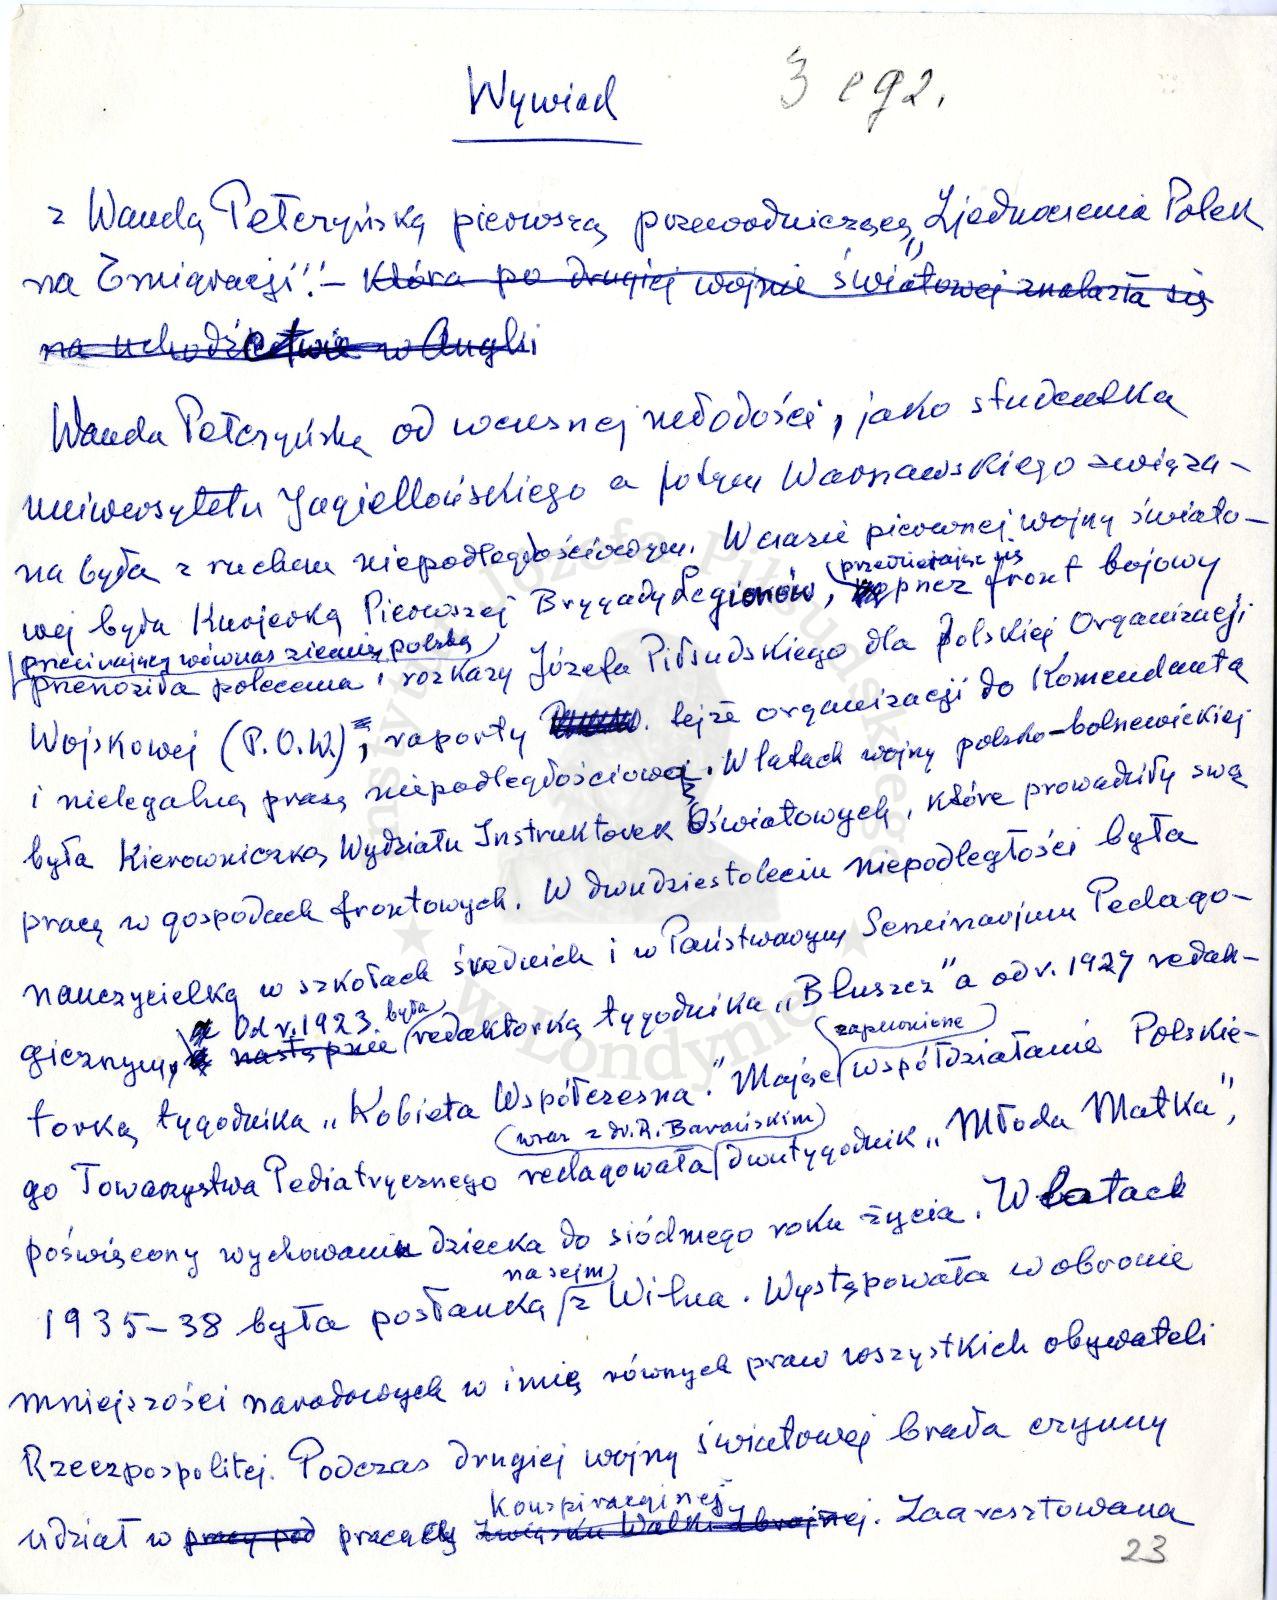 Wywiad
3 egz.
z Wandą Pełczyńską pierwszą przewodniczącą „Zjednoczenia Polek
na Emigracji”. – Która po drugiej wojnie światowej znalazła się
na uchodźctwie w Anglii
Wanda Pełczyńska od wczesnej młodości, jako studentka
uniwersytetu Jagiellońskiego a potym Warszawskiego związa-
na była z ruchem niepodległościowym. W czasie pierwszej wojny świato-
przedzierając się
wej była Kurjerką Pierwszej Brygady Legionów, przez front bojowy
przecinający wówczas ziemię polską
przenosiła polecenia i rozkazy Józefa Piłsudskiego dla Polskiej Organizacji
Wojskowej (P.O.W.), raporty tejże organizacji do Komendanta
i nielegalną prasę niepodległościową. W latach wojny polsko-bolszewickiej
była Kierowniczką Wydziału Instruktorek Oświatowych, które prowadziły swą
pracę w gospodach frontowych. W dwudziestoleciu niepodległości była
nauczycielką w szkołach średnich i w Państwowym Seminarjum Pedago-
Od r. 1923. była
gicznym, następnie redaktorką tygodnika „Bluszcz” a od r. 1927 redak-
zapewnione
torką tygodnika „Kobieta Współczesna.” Mając współdziałanie Polskie-
wraz z dr. R. Barańskim
go Towarzystwa Pediatrycznego redagowała dwutygodnik „Młoda Matka”,
poświęcony wychowaniu dziecka do siódmego roku życia. W latach
na sejm
1935–38 była posłanką z Wilna. Występowała w obronie
mniejszości narodowych w imię równych praw wszystkich obywateli
Rzeczpospolitej. Podczas drugiej wojny światowej brała czynny
Konspiracyjnej
udział w pracy pod pracach Związku Walki Zbrojnej. Zaaresztowana
23
Instytut Józefa Piłsudskiego
w Londynie